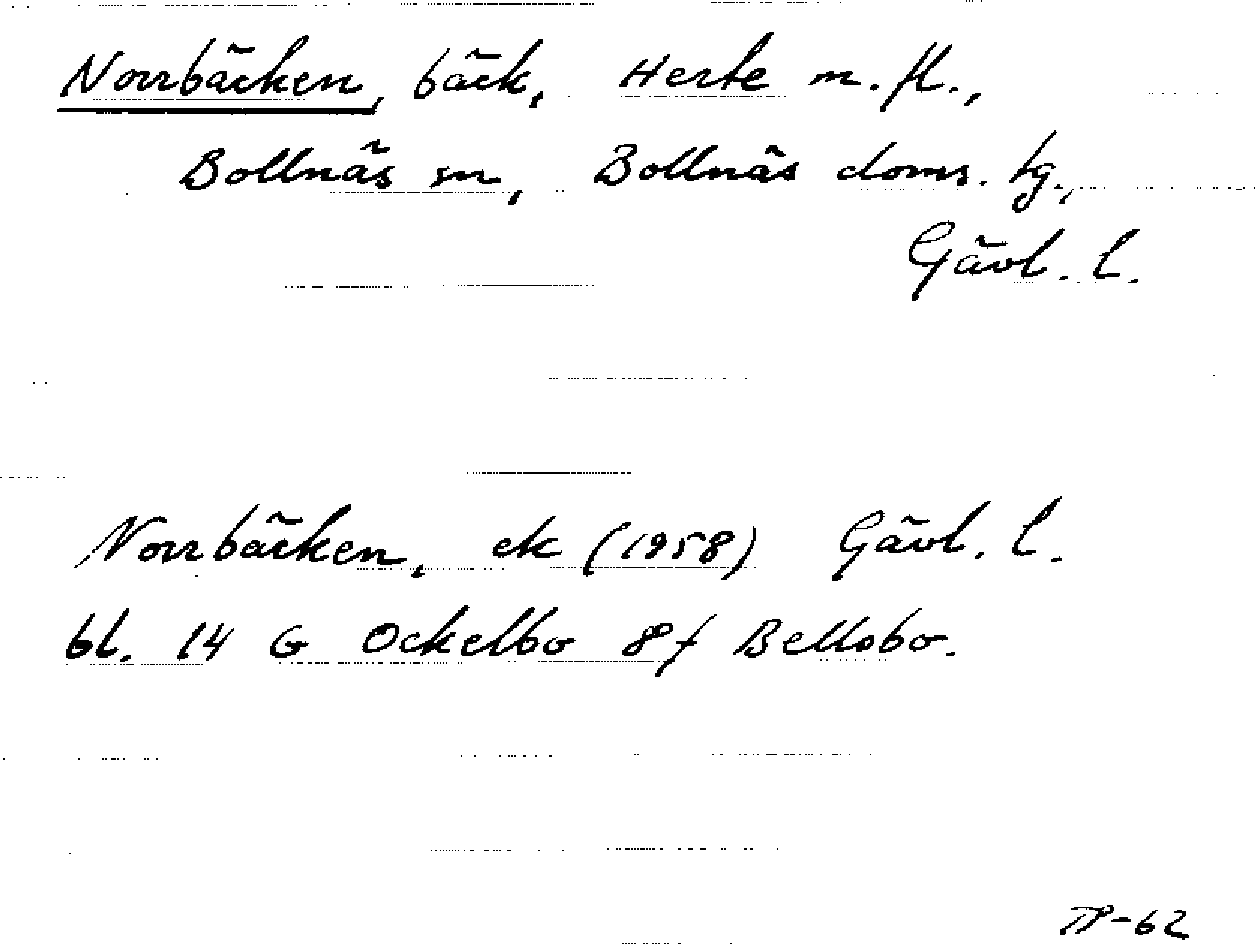 Norrbäcken, bäck, Herte m. fl.,
Bollnäs sn, Bollnäs doms. tg.,
Gävl. l.
Norrbäcken, ek (1958) Gävl. l.
bl. 14 G Ockelbo 8f Bellobo.
TP-62